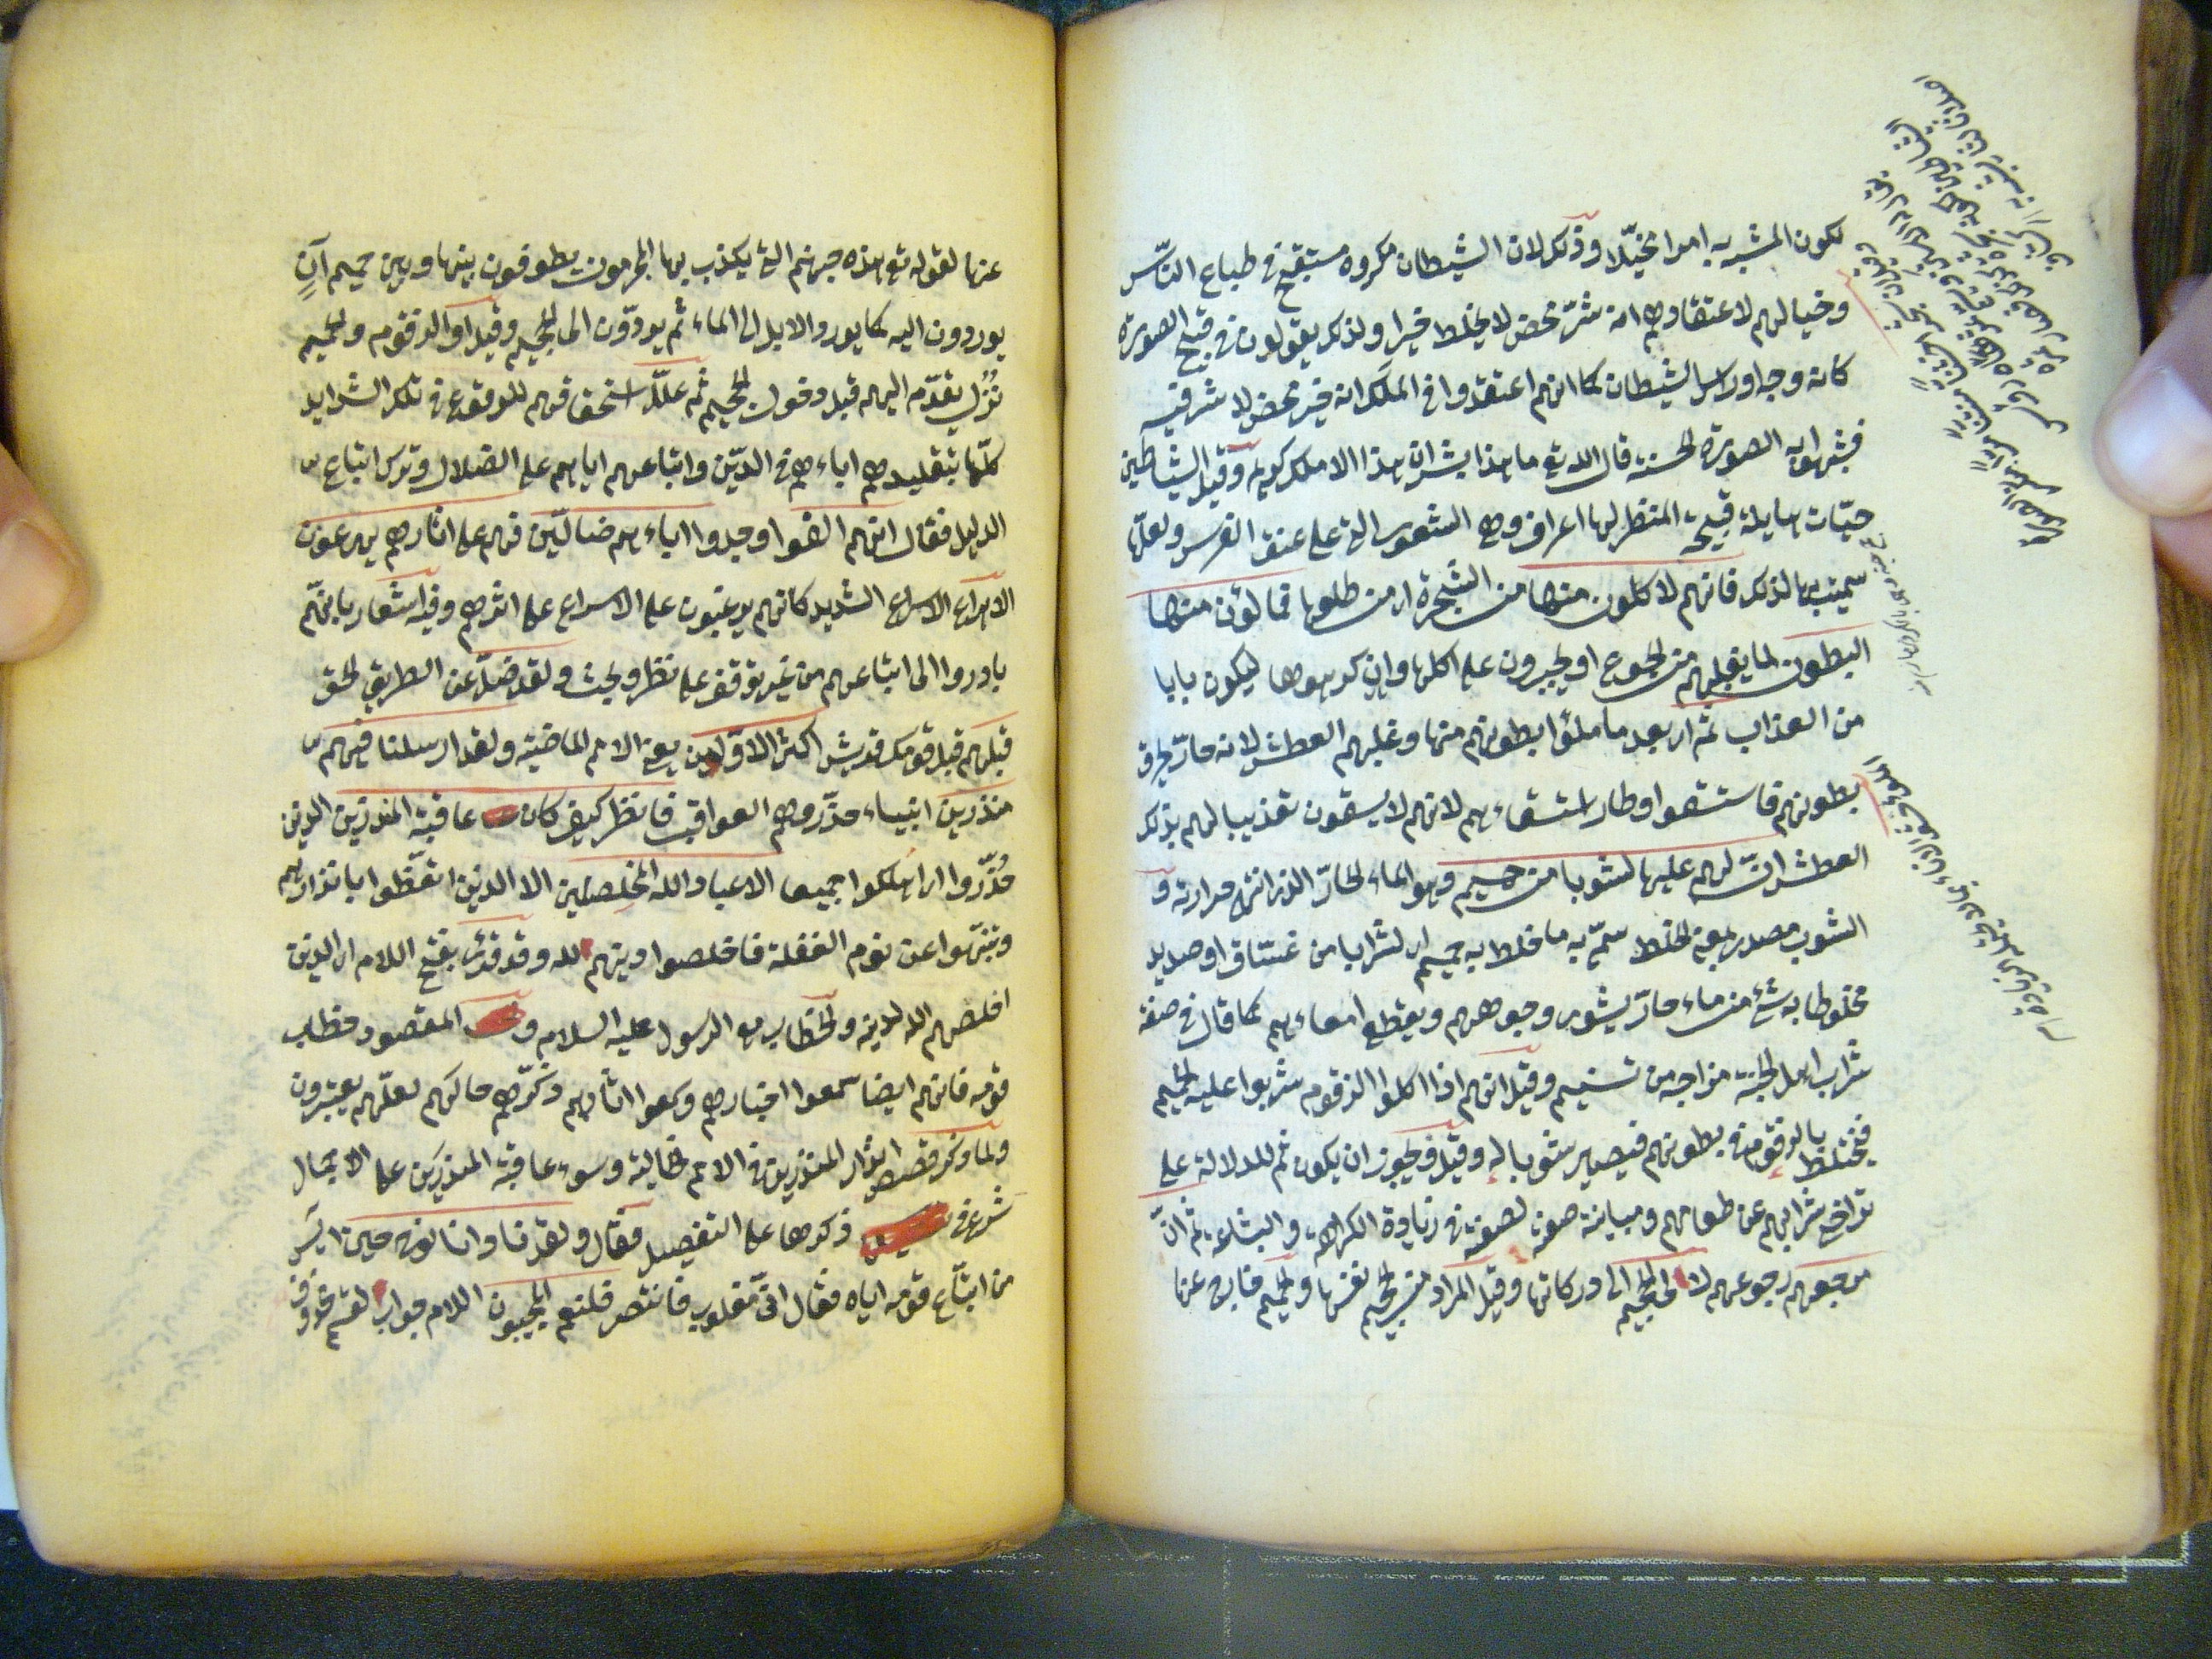 لكون المشبه به امرا مخيّلا وذلك لان الشيطان مكروه مستقبح فى طباع الناس
وخيالهم لاعتقادهم انه شرّ محض لا يخلط خيرا ولذلك يقولون فى قبح الصورة
كانه وجه او راس الشيطان كما انهم اعتقدوا فى الملك انه خير محض لا شر فيه
فيشبهوا به الصورة الحسنة قال الله تع ما هذا بشرا ان هذا الا ملك كريم وقيل الشياطين
حيّات هايلة قبيحة المنظر لها اعراف وهى الشعور التى على عنق الفرس ولعلّها
سميت بها لذلك فانهم لاكلون منها من الشجرة اى من طلعها فمالؤن منها
البطون لما يغلبهم من الجوع او يجبرون على اكلها وان كرهوها ليكون بابا
من العذاب ثم اى بعد ما ملؤا بطونهم منها وغلبهم العطش لانه حارّ يحرق
بطونهم فاستسقوا وطال استسقاءهم لانهم لا يسقون تعذيبا لهم بذلك
العطش انّ لهم عليها لشوبا من حميم وهو الماء الحارّ الذى انتهى حرارته و
الشوب مصدر بمعنى الخلط سمّى به ما خلط به حميم اى لشرابا من غسّاق او صديد
مخلوطا به شئ من ماء حارّ يشوى وجوههم ويقطع امعاءهم كما قال فى صفة
شراب اهل الجنة مزاجه من تسنيم وقيل انهم اذا اكلوا الزقوم شربوا عليه الحميم
فيختلط بالزقوم فى بطونهم فيصير شوبا له وقيل ويجوز ان يكون ثم للدلالة على
تراخى شرابهم عن طعامهم ومباينة صفته لصفته فى زيادة الكراهة والبشاعة ثم انّ
مرجعهم رجوعهم لالى الجحيم الى دركاتها وقيل المراد من الجحيم نفسها والحميم خارج عنها
عنها لقوله تع هذه جهنم التى يكذب بها المجرمون يطوفون بينها وبين حميم آنٍ
يوردون اليه كما يورد الابل الى الماء ثم يردّون الى الجحيم وقيل او الزقوم والحميم
نُزُل يقدّم اليهم قبل دخول الجحيم ثم علّل استحقاقهم للوقوع فى تلك الشدايد
كلّها بتقليدهم اباءهم فى الدّين واتباعهم اياهم على الضلال وترك اتباع
الدليل فقال انهم الفوا وجدوا اباءهم ضالّين فهم على اثارهم يهرعون
الاهراع الاسراع الشديد كانهم يرغبون على الاسراع على اثرهم وفيه اشعار بانهم
بادروا الى اتباعهم من غير توقف على نظر وبحث ولقد ضلّ عن الطريق الحق
قبلهم قبل قومك قريش اكثر الاولين يعنى الامم الماضية ولقد ارسلنا فيهم
منذرين انبياء حذّروهم العواقب فانظر كيف كان عاقبة المنذرين الذين
حُذّروا اى اهلكوا جميعا الا عباد الله المخلصين الا الذين اتعّظوا بانذارهم
وتنبّهوا عن نوم الغفلة فاخلصوا دينهم لله وقد قرئ بفتح اللام اى الذين
اخلصهم الله لدينه والخطاب مع الرسول عليه السلام و المقصود خطاب
قومه فانهم ايضا سمعوا اخبارهم وراوا اثارهم وذكّرهم حالهم لعلّهم يعتبرون
ولما ذكر قصص انذار المنذرين فى الامم الخالية وسوء عاقبة المنذرين على الاجمال
شرع فى ذكرها على التفصيل فقال ولقد نادانا نوح حين ايس
من اتباع قومه اياه فقال انى مغلوب فانتصر فلنعم المجيبون اللام جواب لقسم محذوف